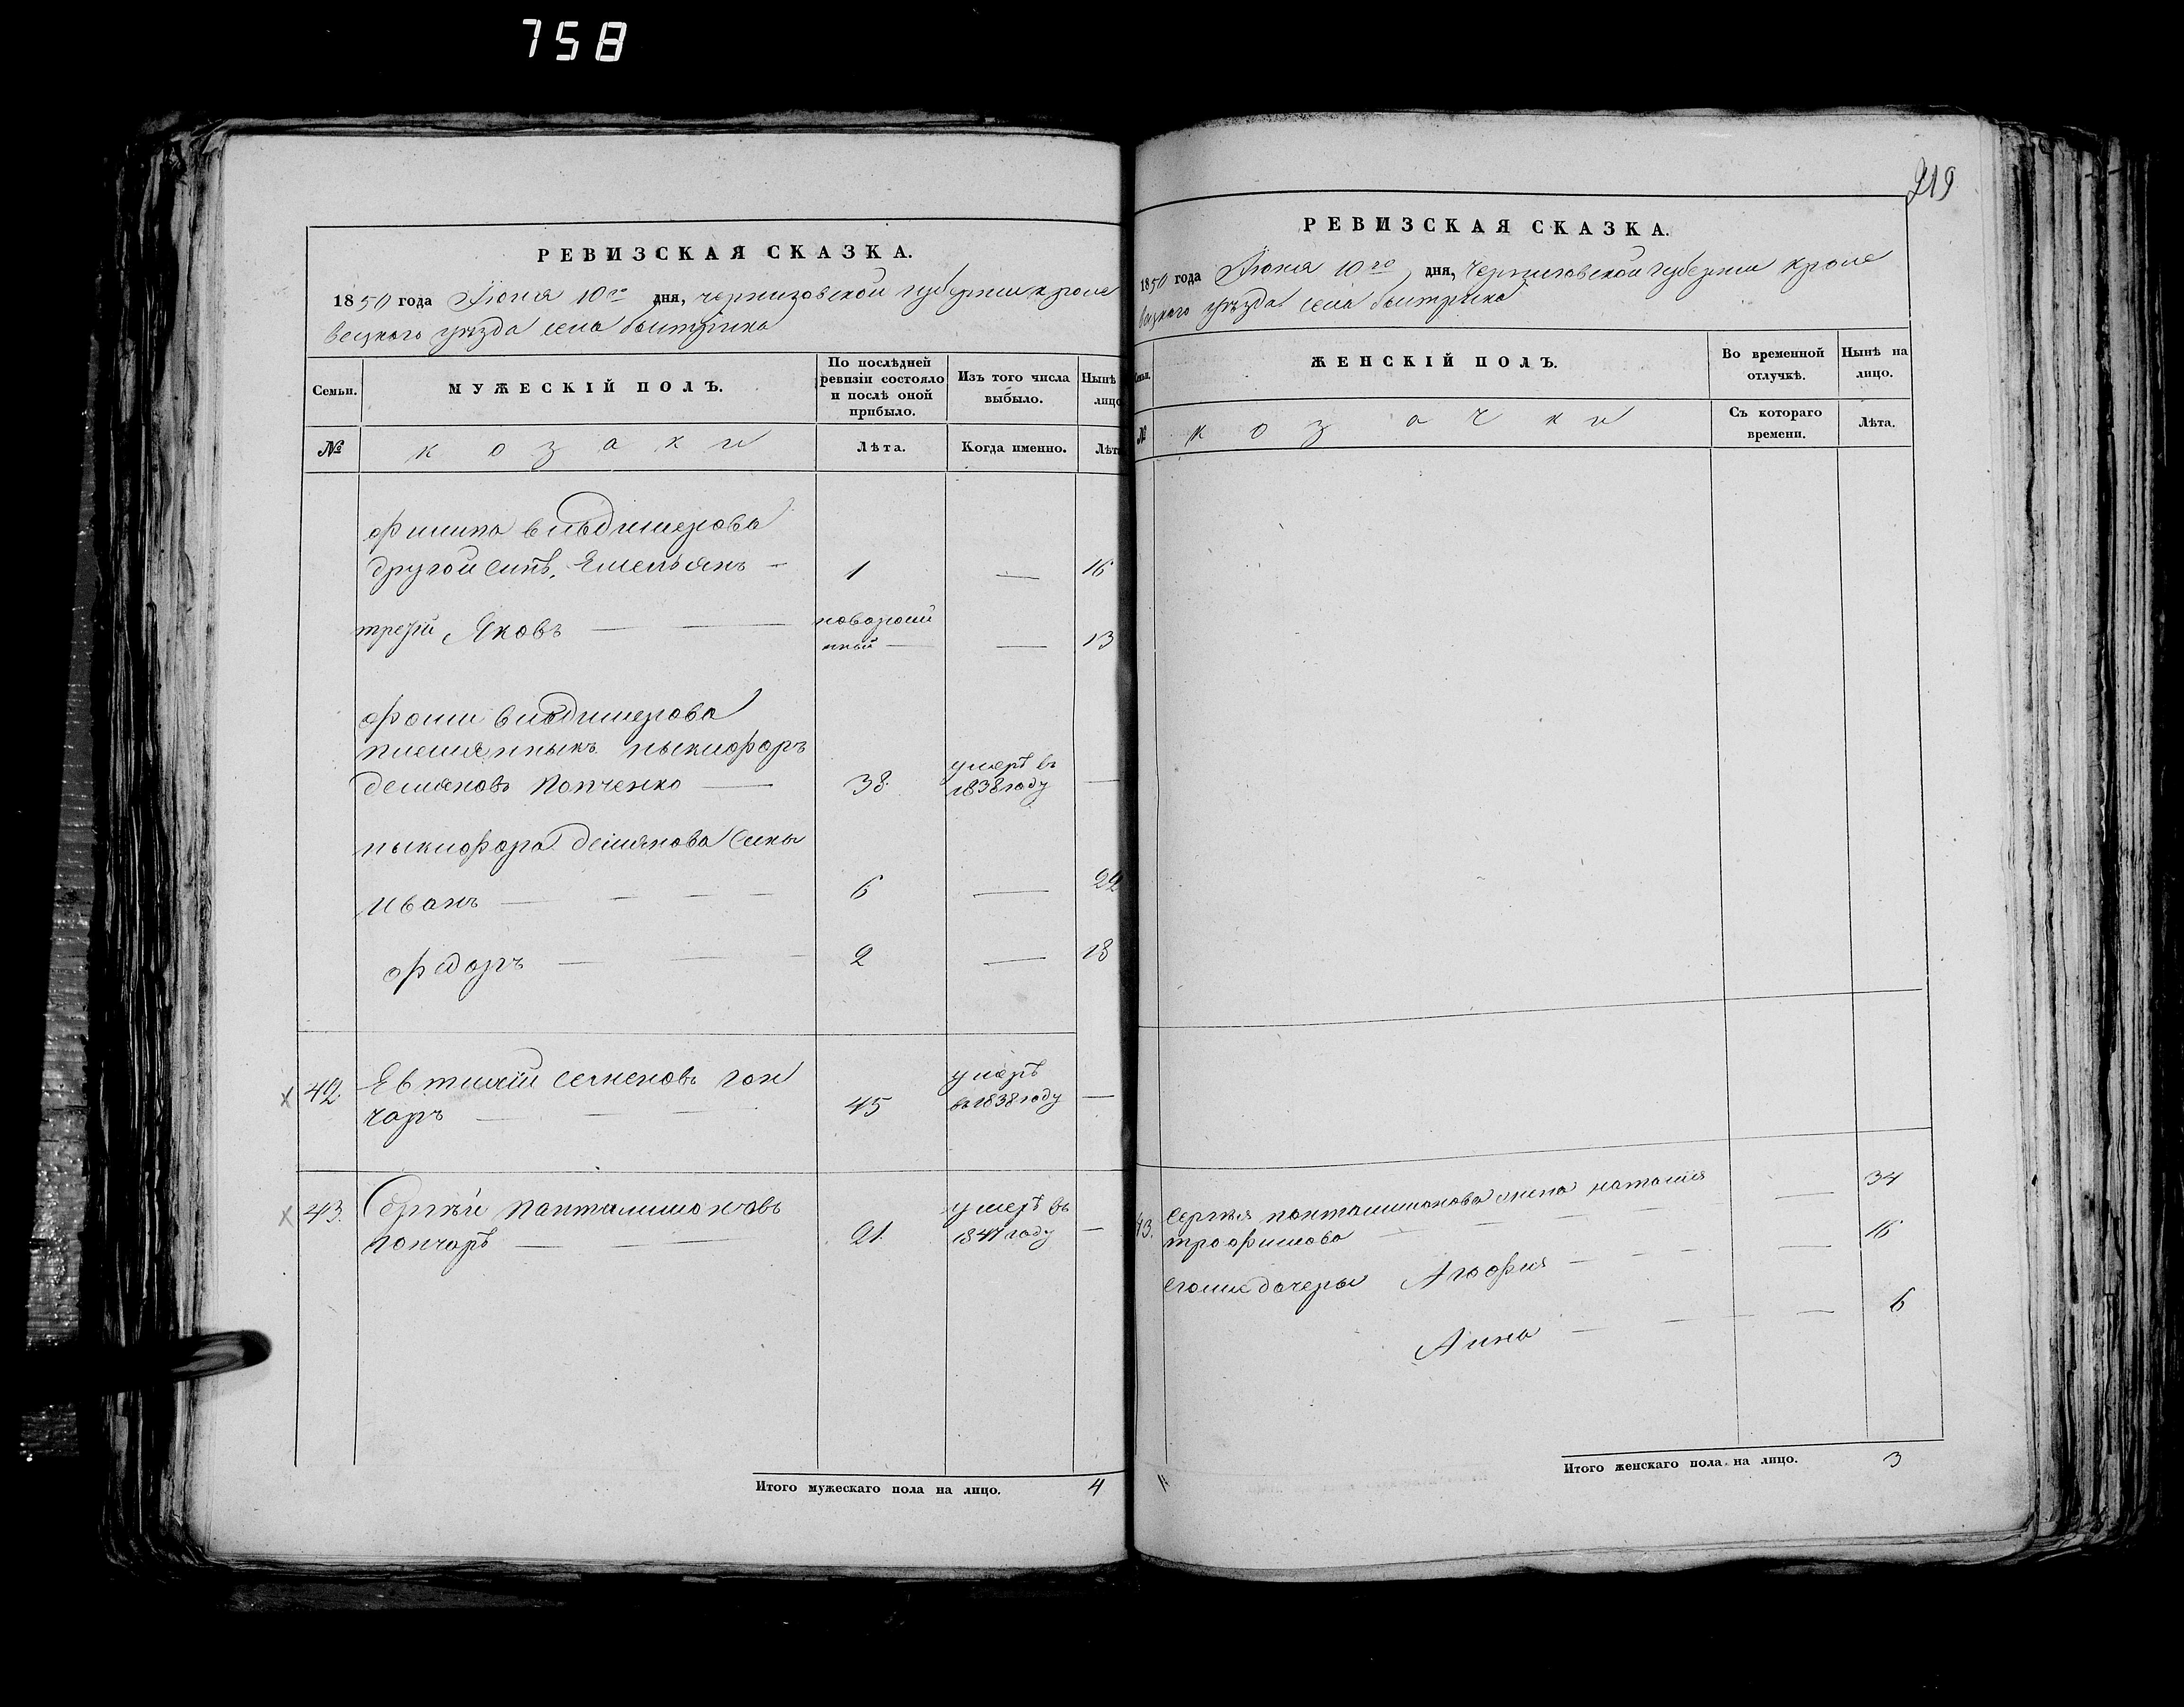 758
РЕВИЗСКАЯ СКАЗКА.
1850 года Июня 10го дня, черниговской губернии кроле
вецкого уѣзда села быстрика
Семьи.
МУЖЕСКІЙ ПОЛЪ.
По послѣдней
ревизіи состояло
и послѣ оной
прибыло.
Изъ того числа
выбыло.
Нынѣ
лицо
№
козаки
Лѣта.
Когда именно.
Лѣта
Филипа владимерова
другой синъ, Емельянъ — 1 — 16
третий Яковъ — — новорож
нный — — 13
Фоми владимерова
племянныкъ ныкифоръ
демяновъ Попченко — 38 умеръ въ
1838 году —
ныкифора демянова сины
Иванъ — — — — 6 — 22
Федоръ — — — 2 — 18
42. Евтихій семеновъ гон
чаръ — — — 45 умеръ
въ 1838 году —
43. Сергѣй Панталимоновъ
гончаръ — — — 21. умеръ въ
1847 году —
Итого мужескаго пола на лицо. 4
219
РЕВИЗСКАЯ СКАЗКА.
1850 года Июня 10го дня, Черниговской губернии кроле
вецкого уѣзда села быстрика
Семьи.
ЖЕНСКІЙ ПОЛЪ.
Во временной
отлучкѣ.
Нынѣ на
лицо.
№
козачки
Съ котораго
времени.
Лѣта.
43. Сергѣя панталимонова жена наталия
трофимова — — — — — 34
егоже дочеры Агафия — — — — 16
Анна — — — — 6
Итого женскаго пола на лицо. 3